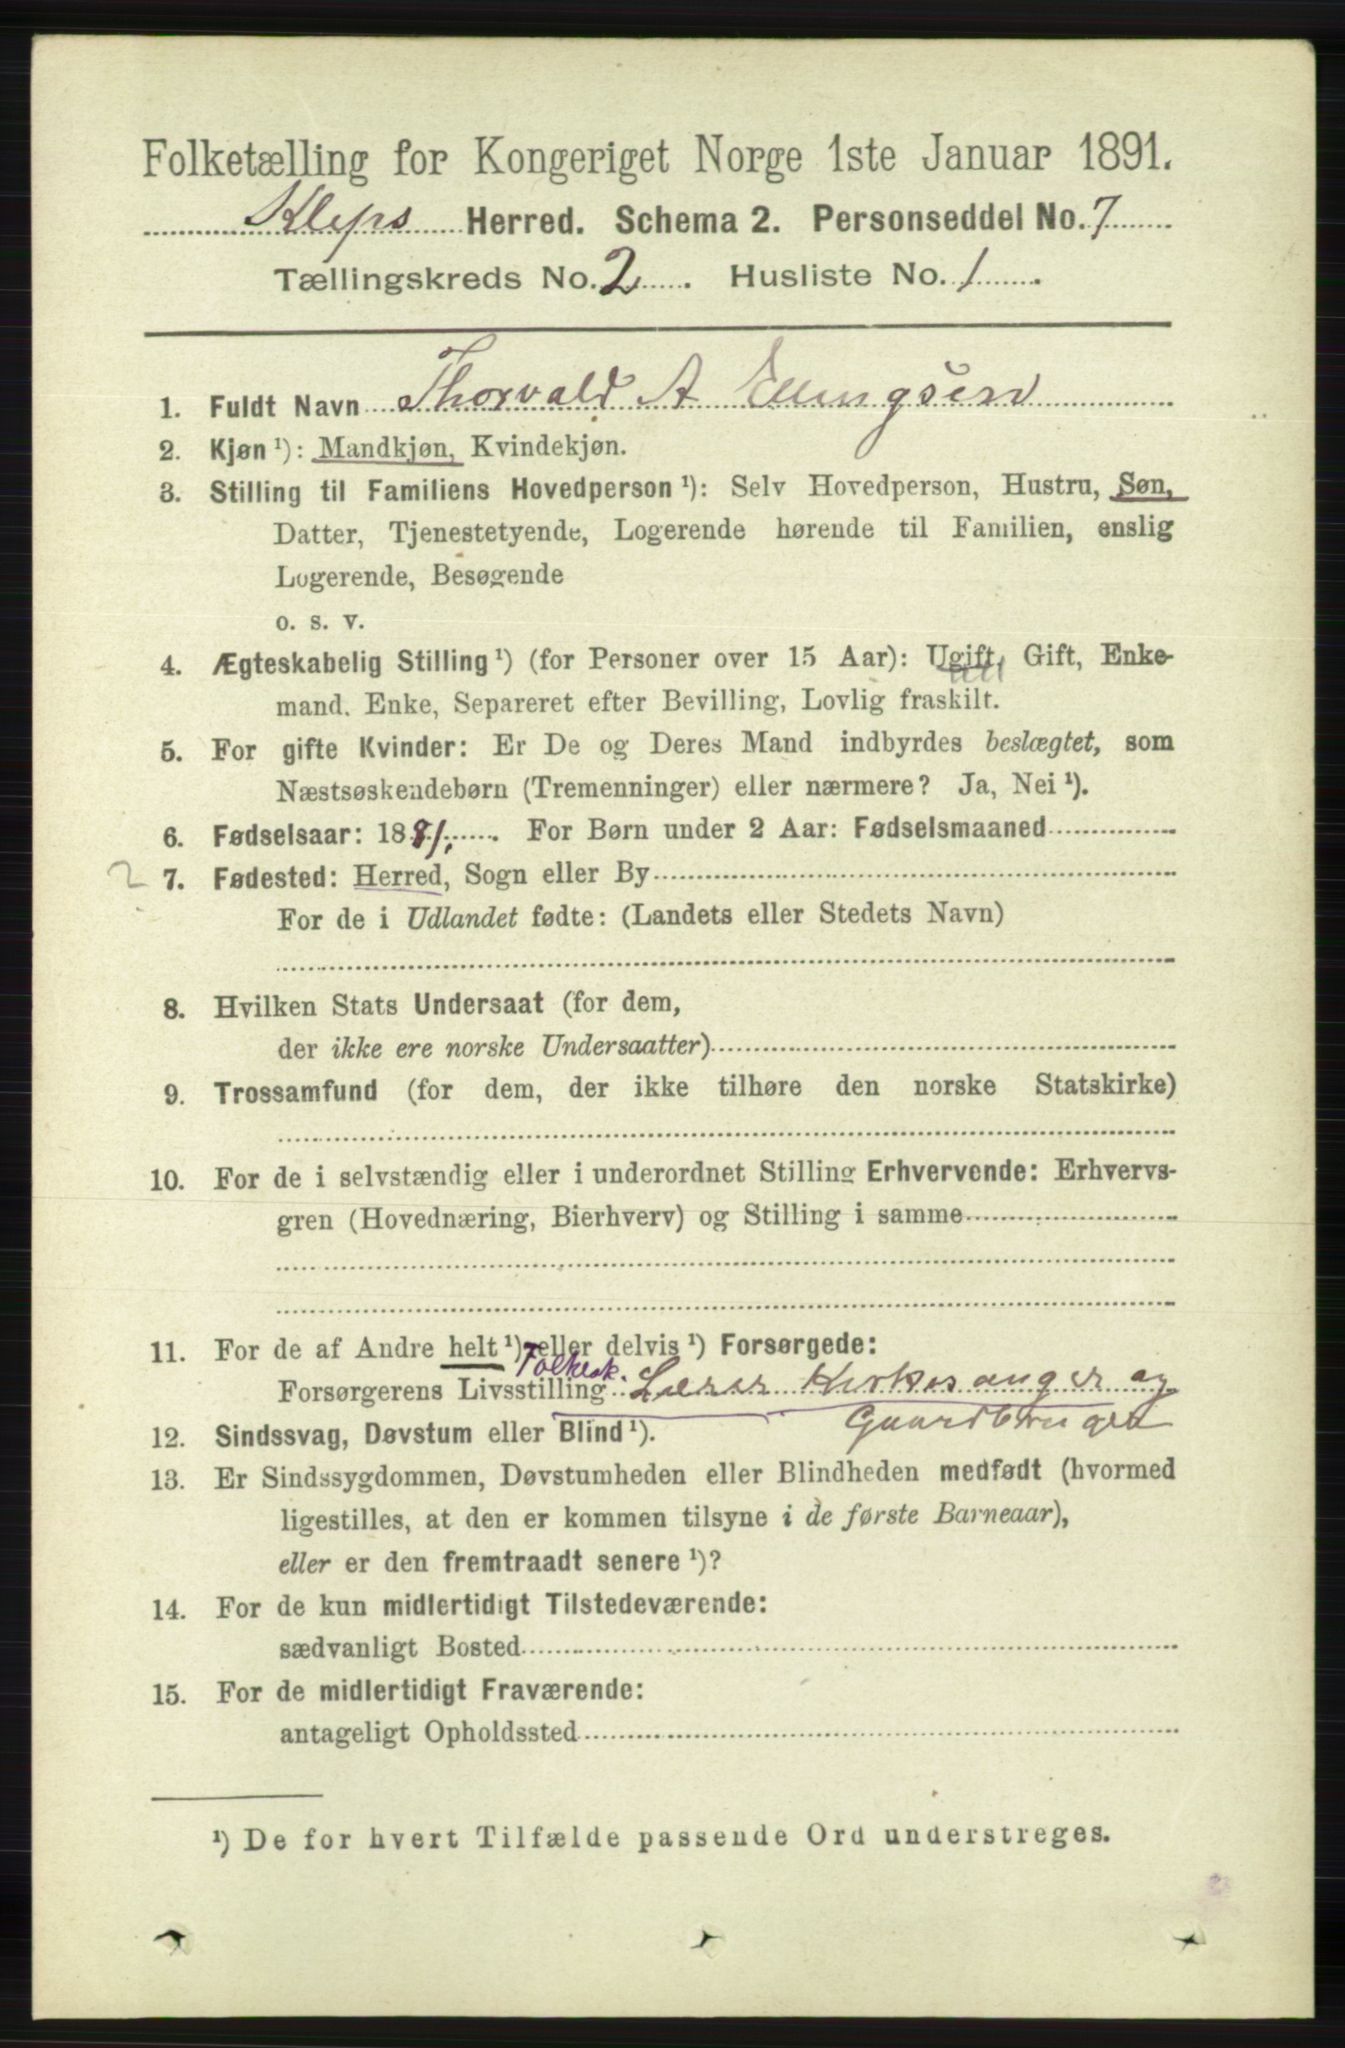 Folketælling for Kongeriget Norge 1ste Januar 1891.
Kleps Herred. Schema 2. Personseddel No. 7
Tællingskreds No. 2. Husliste No. 1.
1. Fuldt Navn Thorvald A Ellingsen
2. Kjøn ¹): Mandkjøn, Kvindekjøn.
3. Stilling til Familiens Hovedperson ¹): Selv Hovedperson, Hustru, Søn,
Datter, Tjenestetyende, Logerende hørende til Familien, enslig
Logerende, Besøgende
o. s. v.
4. Ægteskabelig Stilling ¹) (for Personer over 15 Aar): Ugift, Gift, Enke-
mand, Enke, Separeret efter Bevilling, Lovlig fraskilt.
5. For gifte Kvinder: Er De og Deres Mand indbyrdes beslægtet, som
Næstsøskendebørn (Tremenninger) eller nærmere? Ja, Nei ¹).
6. Fødselsaar: 1881. For Børn under 2 Aar: Fødselsmaaned
2 7. Fødested: Herred, Sogn eller By
For de i Udlandet fødte: (Landets eller Stedets Navn)
8. Hvilken Stats Undersaat (for dem,
der ikke ere norske Undersaatter)
9. Trossamfund (for dem, der ikke tilhøre den norske Statskirke)
10. For de i selvstændig eller i underordnet Stilling Erhvervende: Erhvervs-
gren (Hovednæring, Bierhverv) og Stilling i samme
11. For de af Andre helt ¹) eller delvis ¹) Forsørgede:
Folkesk.
Forsørgerens Livsstilling Lærer Kirkesanger og
Gaardbruger
12. Sindssvag, Døvstum eller Blind ¹).
13. Er Sindssygdommen, Døvstumheden eller Blindheden medfødt (hvormed
ligestilles, at den er kommen tilsyne i de første Barneaar),
eller er den fremtraadt senere ¹)?
14. For de kun midlertidigt Tilstedeværende:
sædvanligt Bosted
15. For de midlertidigt Fraværende:
antageligt Opholdssted
¹) De for hvert Tilfælde passende Ord understreges.